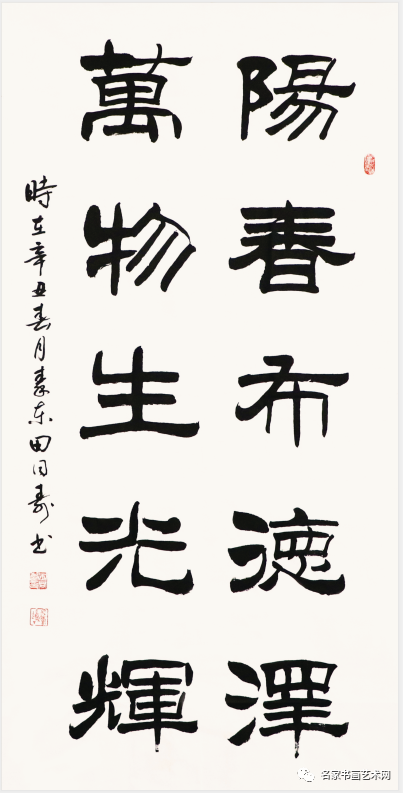 陽春布德澤
萬物生光輝
時在辛丑春月秦东田同寿书
名家书画艺术网